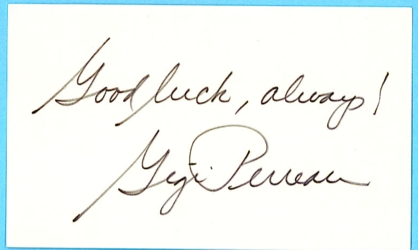 Good luck, always!
Gigi Perreau